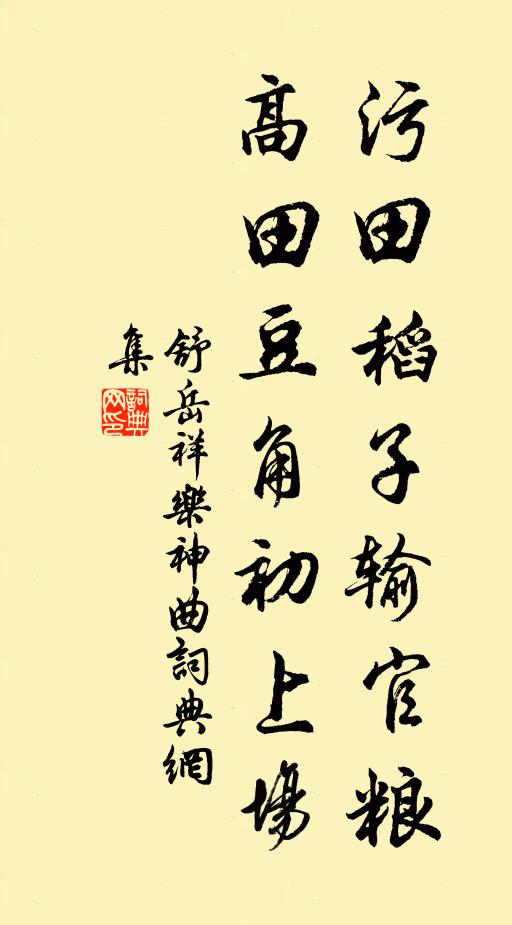 污田稻子输官粮
高田豆角初上場
舒岳祥樂神曲詞典網
集
詞典
网印